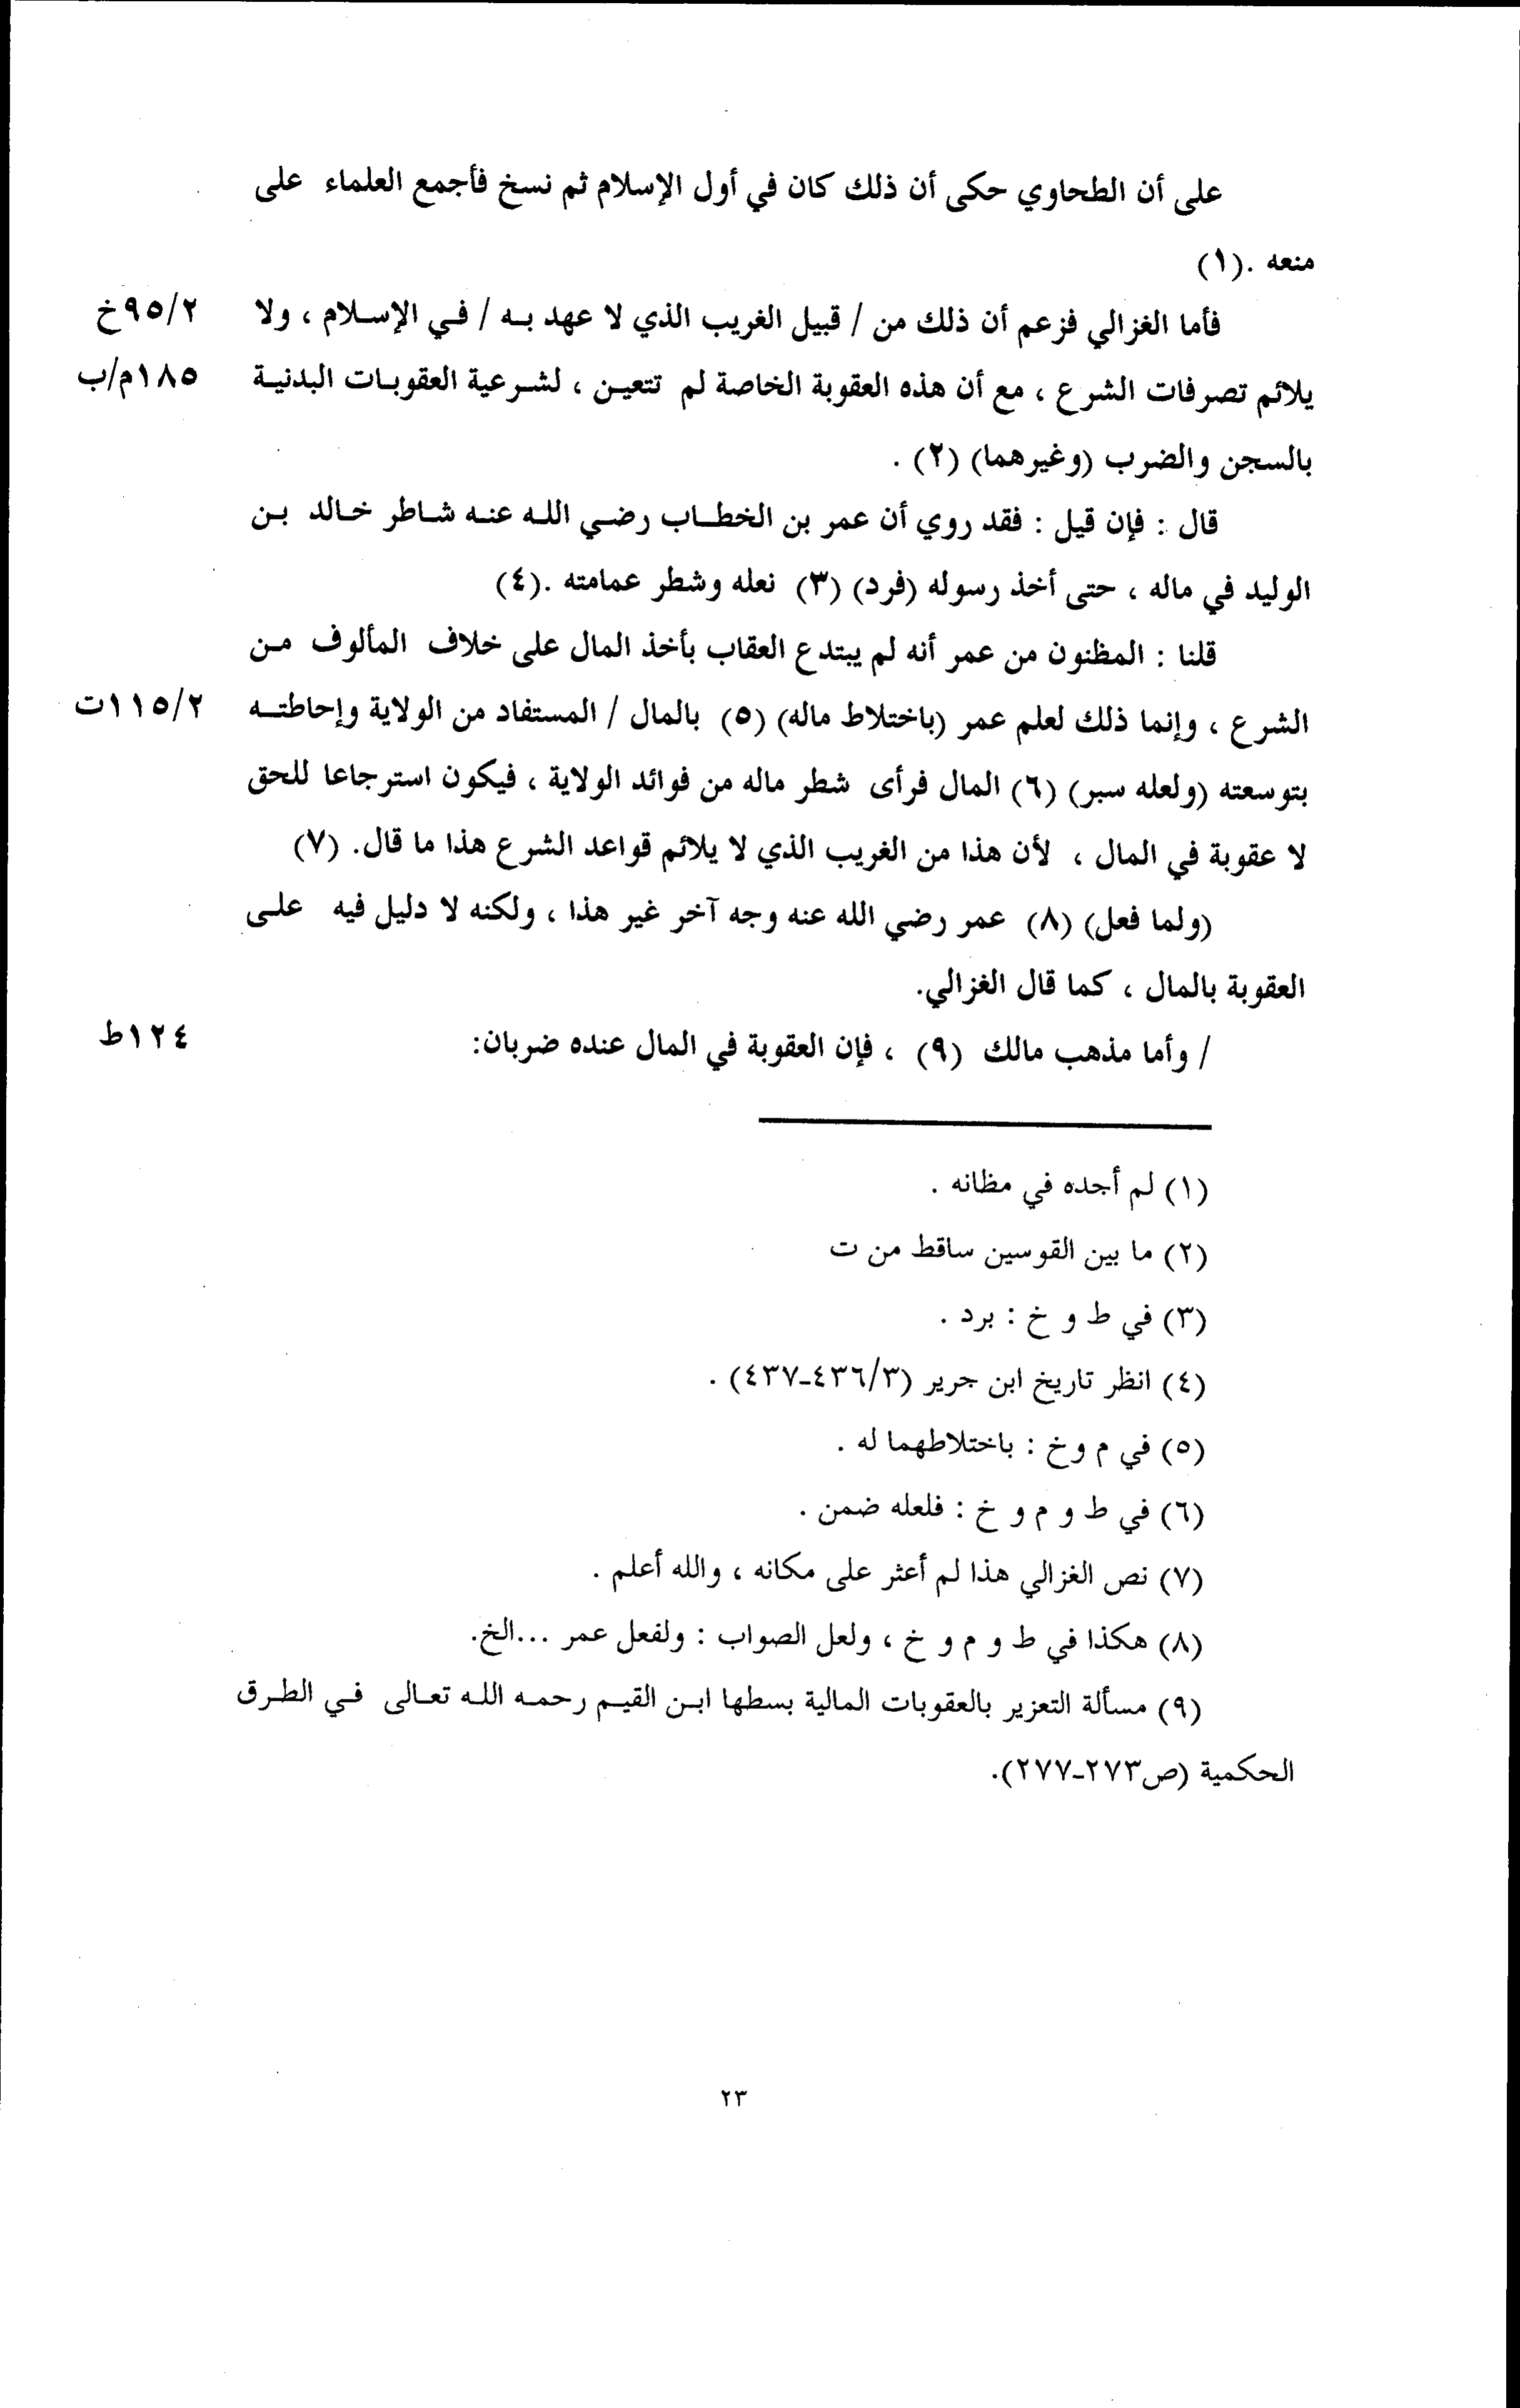 على أن الطحاوي حكى أن ذلك كان في أول الإسلام ثم نسخ فأجمع العلماء على
منعه .(١)
فأما الغزالي فزعم أن ذلك من / قبيل الغريب الذي لا عهد به / في الإسلام ، ولا ٩٥/٢خ
يلائم تصرفات الشرع ، مع أن هذه العقوبة الخاصة لم تتعين ، لشرعية العقوبات البدنية ١٨٥م/ب
بالسجن والضرب (وغيرهما) (٢) .
قال : فإن قيل : فقد روي أن عمر بن الخطاب رضي الله عنه شاطر خالد بن
الوليد في ماله ، حتى أخذ رسوله (فرد) (٣) نعله وشطر عمامته .(٤)
قلنا : المظنون من عمر أنه لم يبتدع العقاب بأخذ المال على خلاف المألوف من
الشرع ، وإنما ذلك لعلم عمر (باختلاط ماله) (٥) بالمال / المستفاد من الولاية وإحاطته ١١٥/٢ت
بتوسعته (ولعله سبر) (٦) المال فرأى شطر ماله من فوائد الولاية ، فيكون استرجاعا للحق
لا عقوبة في المال ، لأن هذا من الغريب الذي لا يلائم قواعد الشرع هذا ما قال. (٧)
(ولما فعل) (٨) عمر رضي الله عنه وجه آخر غير هذا ، ولكنه لا دليل فيه على
العقوبة بالمال ، كما قال الغزالي.
/ وأما مذهب مالك (٩) ، فإن العقوبة في المال عنده ضربان: ١٢٤ط
(١) لم أجده في مظانه .
(٢) ما بين القوسين ساقط من ت
(٣) في ط و خ : برد .
(٤) انظر تاريخ ابن جرير (٤٣٦/٣-٤٣٧) .
(٥) في م وخ : باختلاطهما له .
(٦) في ط و م و خ : فلعله ضمن .
(٧) نص الغزالي هذا لم أعثر على مكانه ، والله أعلم .
(٨) هكذا في ط و م و خ ، ولعل الصواب : ولفعل عمر ...الخ.
(٩) مسألة التعزير بالعقوبات المالية بسطها ابن القيم رحمه الله تعالى في الطرق
الحكمية (ص٢٧٣-٢٧٧).
٢٣